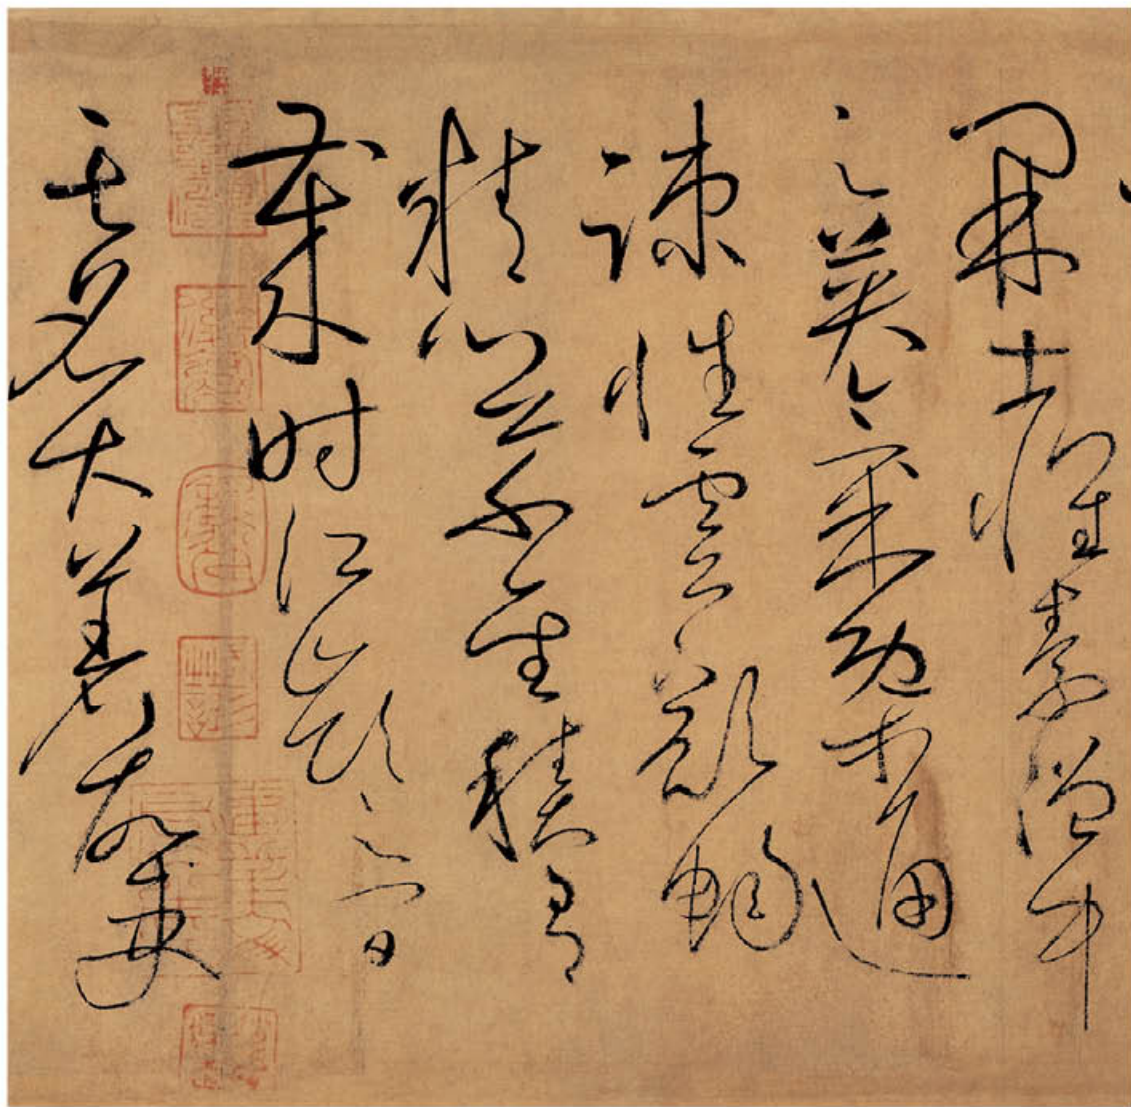 開士懷素僧中
之英氣概通
疎性靈豁暢
精心草聖積有
歲時江嶺之間
其名大著故吏